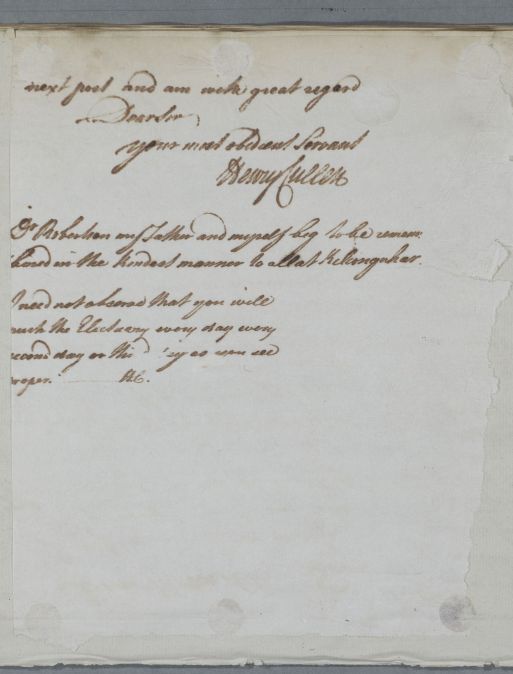 next post and am with great regard
Dear Sir,
your most obedient Servant
Henry Cullen
Dr Robertson my Father and myself beg to be remem
bered in the kindest manner to all at Kilconquhar.
I need not observe that you will
the Electuary every day every
second day or thi day as you see
proper. H.C.